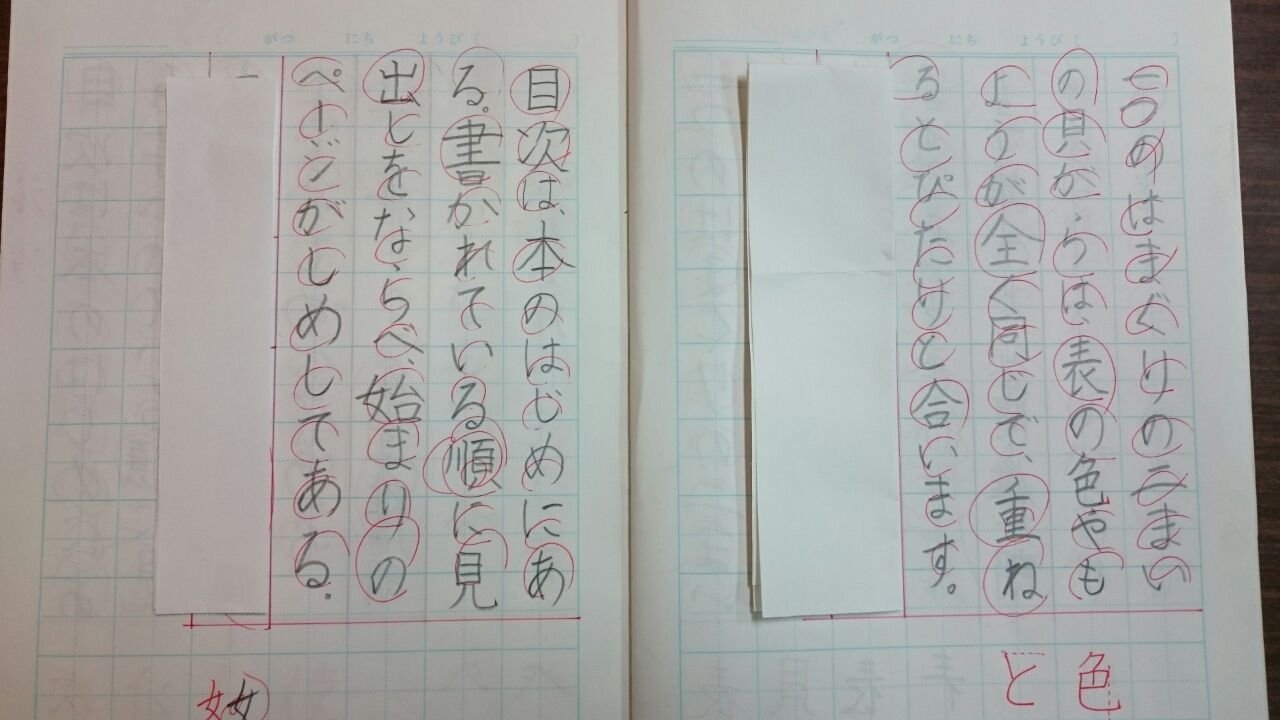 がつ にち ようび ( )
一つのはまぐりの二まい
の貝がらは、表の色やも
ようが全く同じで、重ね
るとぴたりと合います。
色
と
がつ にち ようび ( )
目次は、本のはじめにあ
る。書かれている順に見
出しをならべ、始まりの
ページがしめしてある。